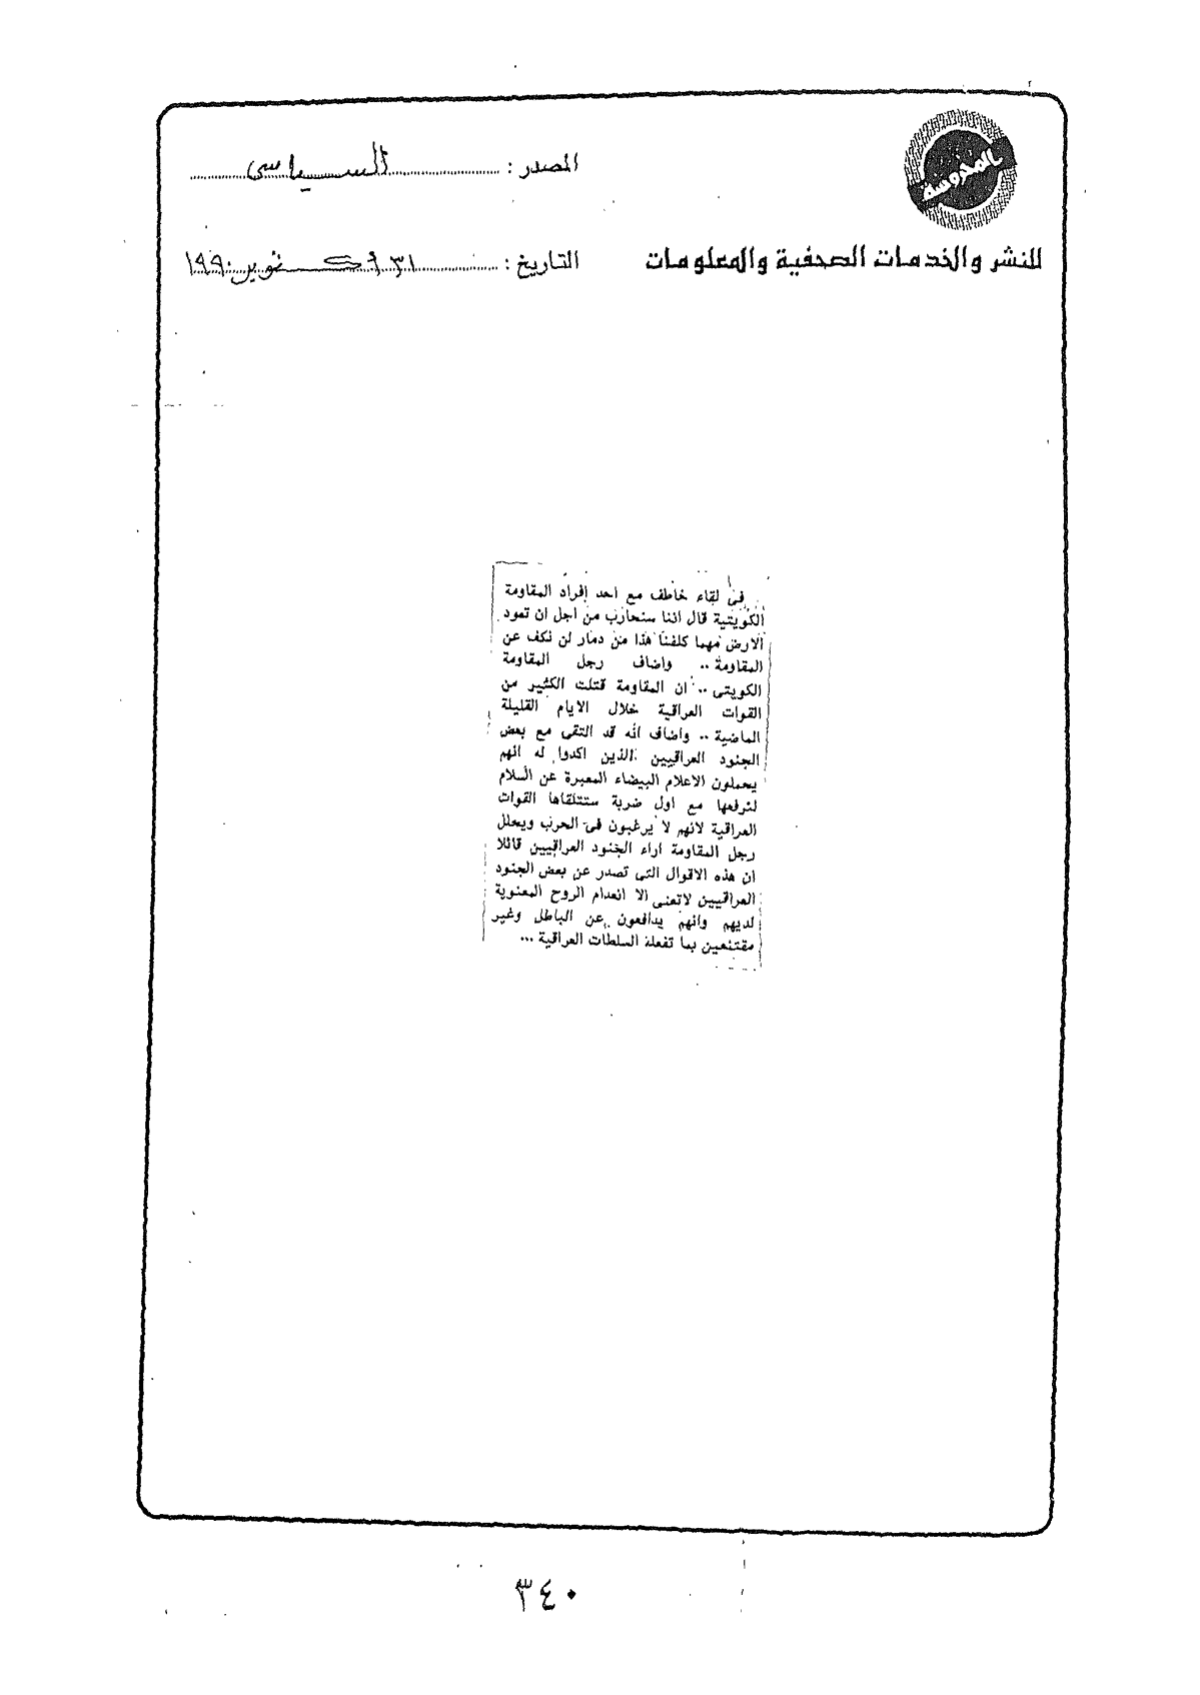 المحروسة
المصدر : السياسى
للنشر والخدمات الصحفية والمعلومات
التاريخ : ٣١ نوفمبر ١٩٩٠
فى لقاء خاطف مع احد افراد المقاومة
الكويتية قال اننا سنحارب من اجل ان تعود
الارض مهما كلفنا هذا من دمار لن نكف عن
المقاومة .. واضاف رجل المقاومة
الكويتى .. ان المقاومة قتلت الكثير من
القوات العراقية خلال الايام القليلة
الماضية .. واضاف انه قد التقى مع بعض
الجنود العراقيين الذين اكدوا له انهم
يحملون الاعلام البيضاء المعبرة عن السلام
لترفعها مع اول ضربة ستتلقاها القوات
العراقية لانهم لا يرغبون فى الحرب ويحلل
رجل المقاومة اراء الجنود العراقيين قائلا
ان هذه الاقوال التى تصدر عن بعض الجنود
العراقيين لاتعنى الا انعدام الروح المعنوية
لديهم وانهم يدافعون عن الباطل وغير
مقتنعين بما تفعله السلطات العراقية ...
٣٤٠